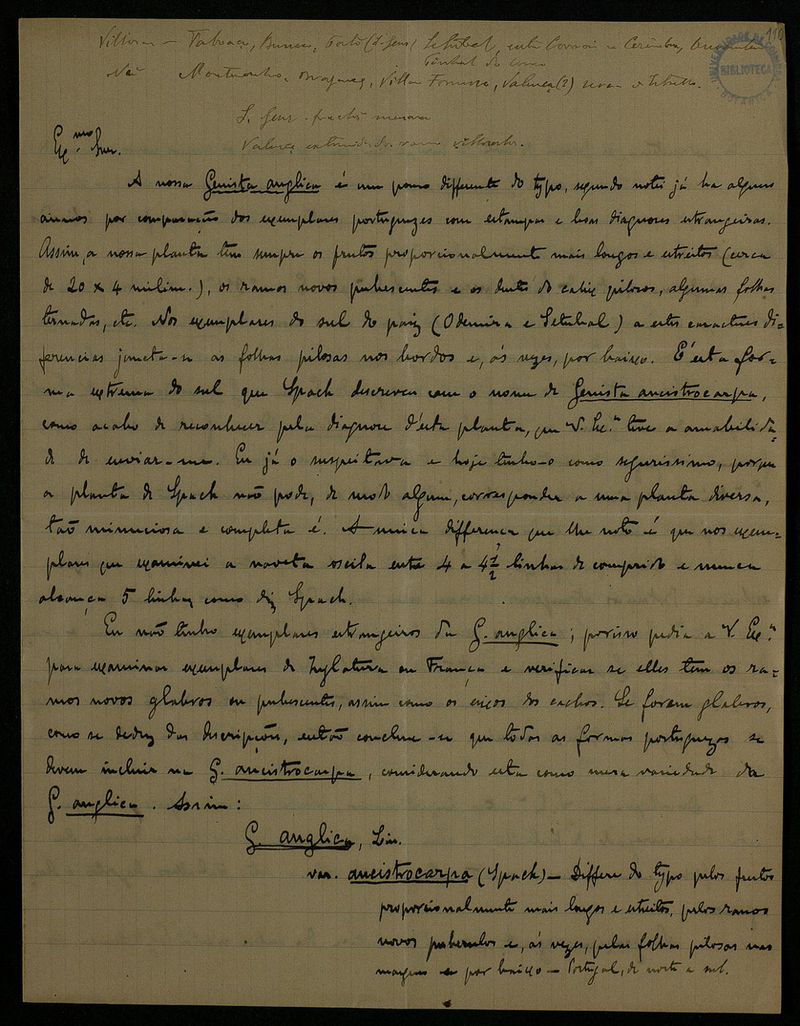 110
UNIVERSIDADE DE COIMBRA
BIBLIOTECA
BOTANICA
Villosa — Taboaça, Porto (S. Gens) Setubal, entre e Cezimbra,
Não Montemor, Bragança, Villa Valença (?)
S. Gens
Valença
Ex.mo Snr.
A nossa Genista anglica é um pouco differente do typo, segundo notei já ha alguns
annos por comparação dos exemplares portuguezes com estampas e boas diagnoses estrangeiras.
Assim, a nossa planta tem sempre os frutos proporcionalmente mais longos e estreitos (cerca
de 20 x 4 milim.), os ramos novos pubescentes e os dentes do calix pilosos, algumas folhas
ternadas, etc. Nos exemplares do sul do paiz (Odemira e Setubal) a estes caracteres dif-
ferenciaes juncta-se as folhas pilosas nos bordos e, ás vezes, por baixo. É esta for-
ma extrema do sul que Spach descreveu com o nome de Genista ancistrocarpa,
como acabo de reconhecer pela diagnose d'esta planta, que V. Ex.a teve a amabilida-
de de enviar-me. Eu já o suspeitava e hoje tenho-o como segurissimo, porque
a planta de Spach não pode, de modo algum, corresponder a uma planta diversa,
tão minuciosa e completa é. A unica differença que lhe noto é que nos exem-
plares que examinei a naveta oscila entre 4 a 4 1/2 linhas de comprido e nunca
alcança 5 linhas como diz Spach.
Eu não tenho exemplares estrangeiros da G. anglica; porisso pedia a V. Ex.a
para examinar exemplares de Inglaterra ou França e verificar se elles tem os ra-
mos novos glabros ou pubescentes, assim como os eixos dos cachos. Se forem glabros,
como se deduz das descripções, então conclue-se que todas as formas portuguezas se
devem incluir na G. ancistrocarpa, considerando esta como mera variedade da
G. anglica. Assim:
G. anglica, Lin.
var. ancistrocarpa (Spach) — Differe do typo pelos frutos
proporcionalmente mais longos e estreitos, pelos ramos
novos puberulos e, ás vezes, pelas folhas pilosas nas
margens e por baixo — Portugal, de norte a sul.